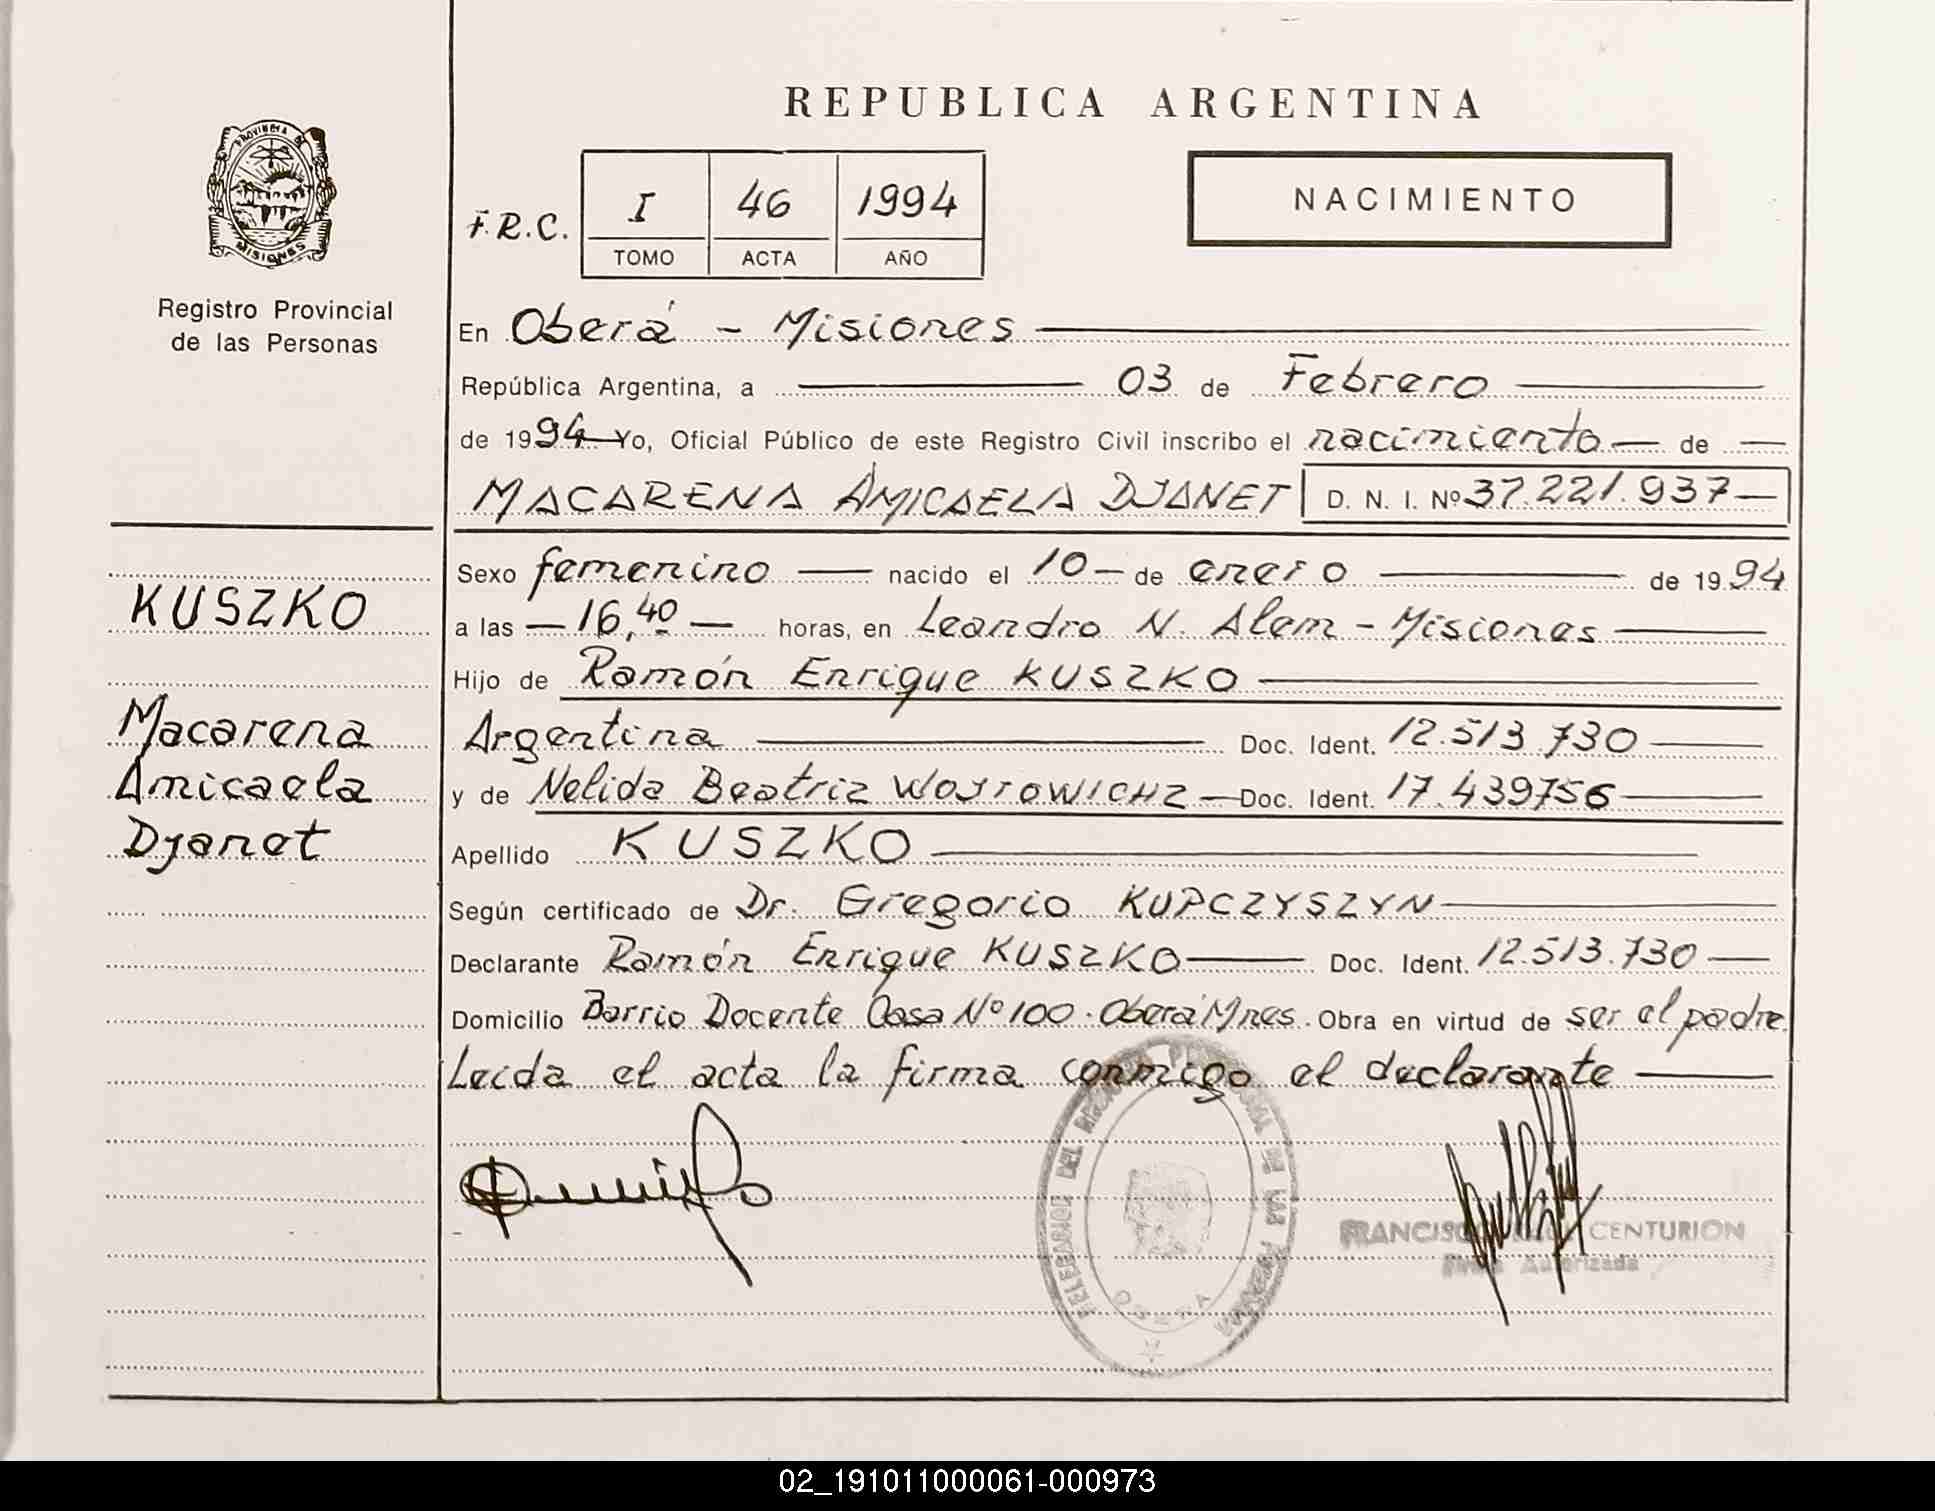 REPUBLICA ARGENTINA
PROVINCIA DE
MISIONES
Registro Provincial
de las Personas
F.R.C.
I 46 1994
TOMO ACTA AÑO
NACIMIENTO
En Oberá - Misiones
República Argentina, a 03 de Febrero
de 1994 Yo, Oficial Público de este Registro Civil inscribo el nacimiento de
MACARENA AMICAELA DJANET D. N. I. Nº 37.221.937
Sexo femenino nacido el 10 de enero de 1994
a las 16,40 horas, en Leandro N. Alem - Misiones
Hijo de Ramón Enrique KUSZKO
Argentina Doc. Ident. 12.513.730
y de Nelida Beatriz WOJTOWICHZ Doc. Ident. 17.439756
Apellido KUSZKO
Según certificado de Dr. Gregorio KUPCZYSZYN
Declarante Ramón Enrique KUSZKO Doc. Ident. 12.513.730
Domicilio Barrio Docente Casa Nº 100. Oberá Mnes. Obra en virtud de ser el padre.
Leida el acta la firma conmigo el declarante
KUSZKO
Macarena
Amicaela
Djanet
DEL REGISTRO PROVINCIAL DE LAS PERSONAS
OBERA
FRANCISCO CENTURION
Firma Autorizada
02_191011000061-000973